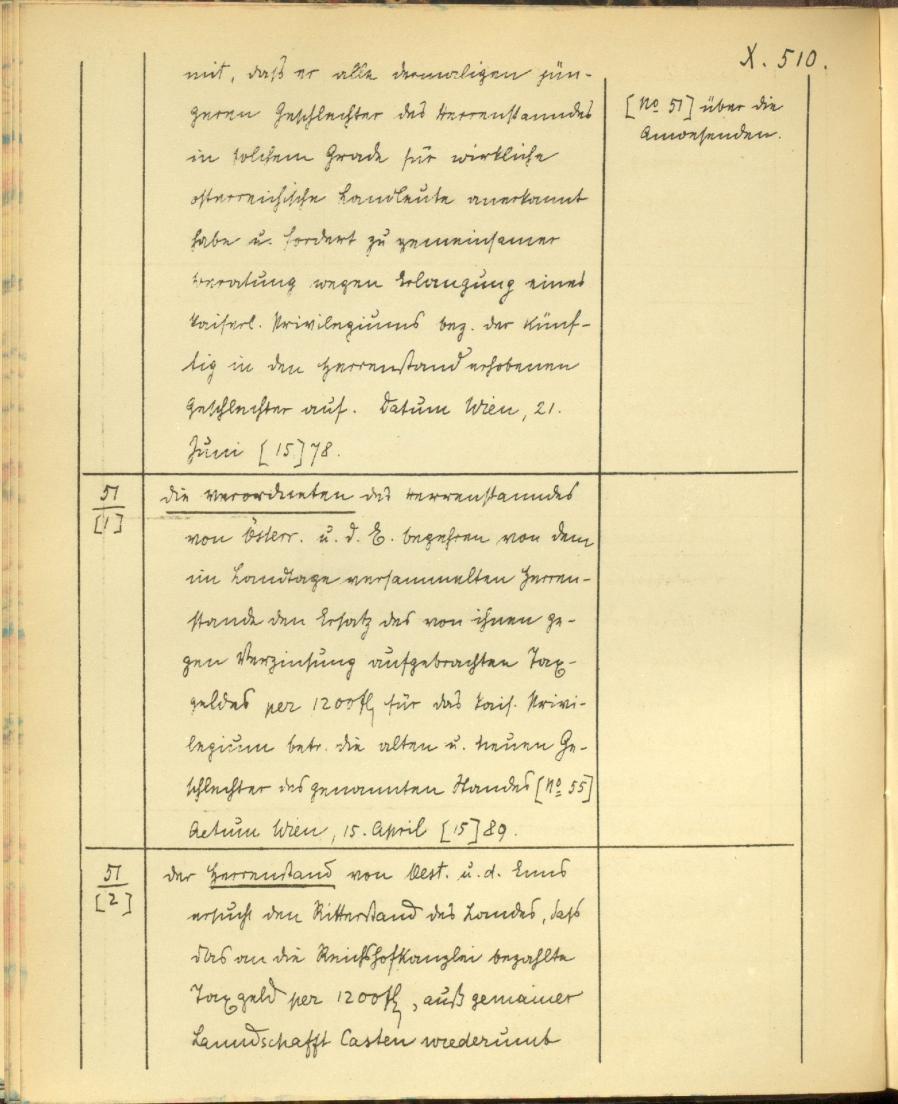 X. 510.
mit, daß er alle dermaligen jün-
geren Geschlechter des Herrenstanndes
in solchem Grade für wirkliche
österreichische Landleute anerkannt
habe u. fordert zu gemeinsamer
Beratung wegen Erlangung eines
kaiserl. Privilegiums bez. der künf-
tig in den Herrenstand erhobenen
Geschlechter auf. Datum Wien, 21.
Juni [15]78.
[No 51] über die
Anwesenden.
51
[1]
die Verordneten des Herrenstanndes
von Österr. u. d. E. begehren von dem
im Landtage versammelten Herren-
stande den Ersatz des von ihnen ge-
gen Verzinsung aufgebrachten Tax-
geldes per 1200 fl für das kais. Privi-
legium betr. die alten u. neuen Ge-
schlechter des genannten Standes [No 55]
Actum Wien, 15. April [15]89.
51
[2]
der Herrenstand von Oest. u. d. Enns
ersucht den Ritterstand des Landes, daß
das an die Reichshofkanzlei bezahlte
Taxgeld per 1200 fl, „auß gemainer
Lanndschafft Casten wiederumb